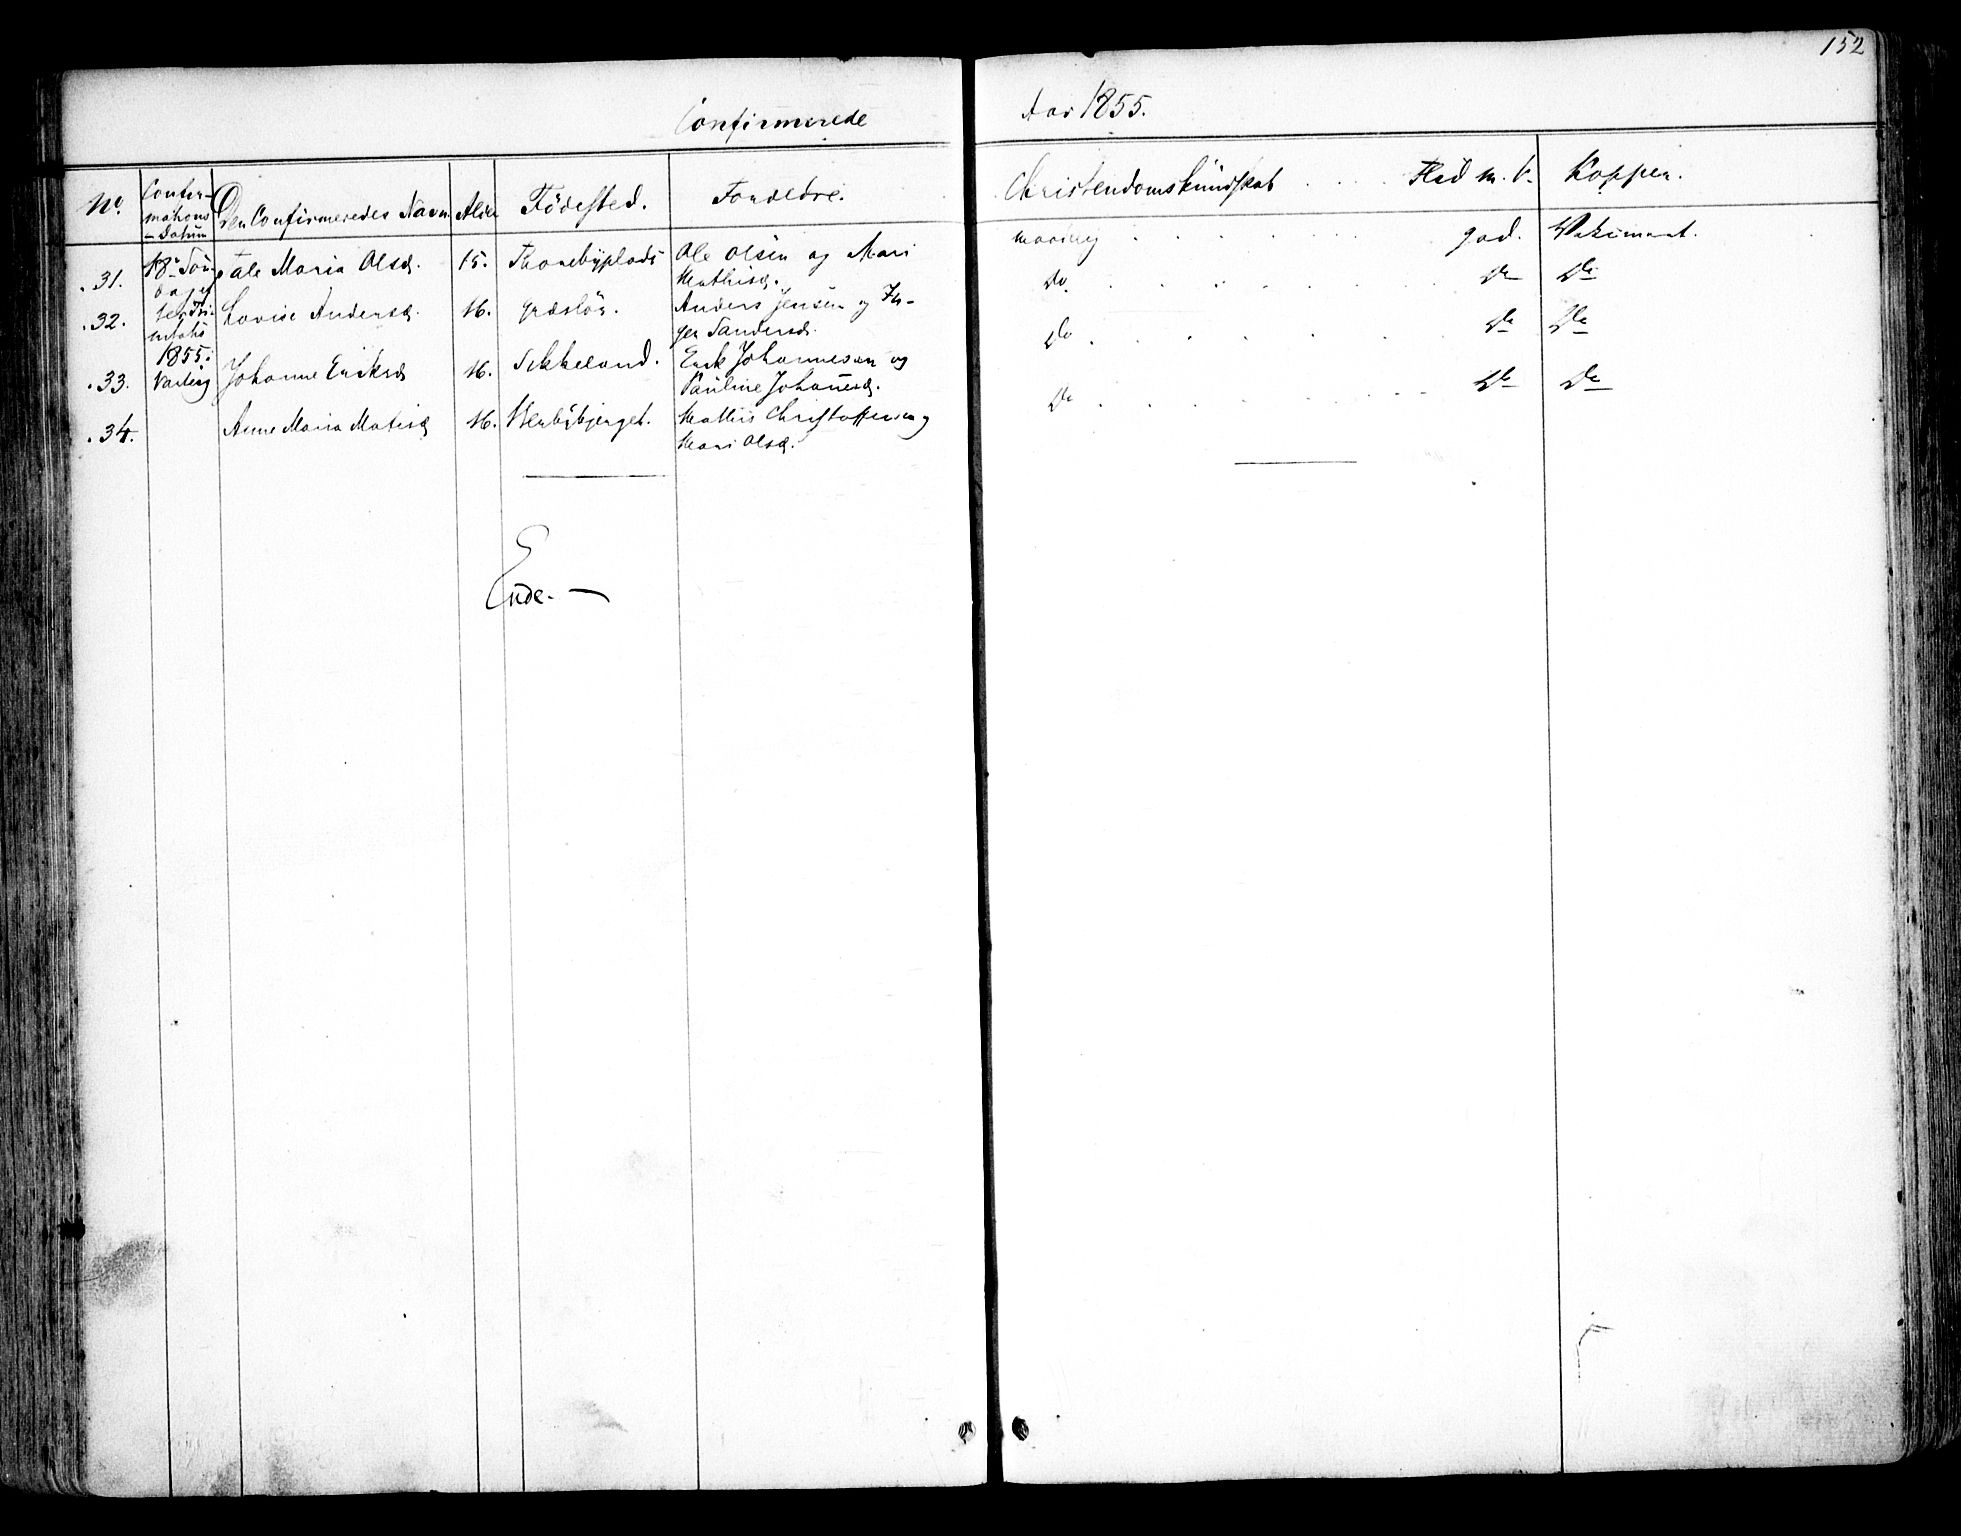 152
Confirmerede Aar 1855.
No. Confirmations-Datum Den Confirmeredes Navn Alder Födested. Forældre. Christendomskundskab . . . . Flid m. V. Kopper.
31. 18de Søndag efter Trinitatis 1855. Tale Maria Olsd. 15. Ole Olsen og Mari Mathisd. god. Vaksineret.
32. Lovise Andersd. 16. Græslör. Anders Jensen og Inger Sandersd. Do Do Do
33. Johanne Eriksd. 16. Sikkeland. Erik Johannesen og Pauline Johanesd. Do Do Do
34. Anne Maria Matisd. 16. Mathis Christoffersen og Mari Olsd. Do Do Do
Ende.—